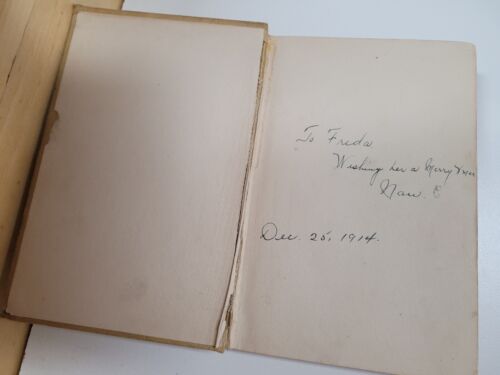 To Freda
Wishing her a Merry Xmas
Dec. 25, 1914.